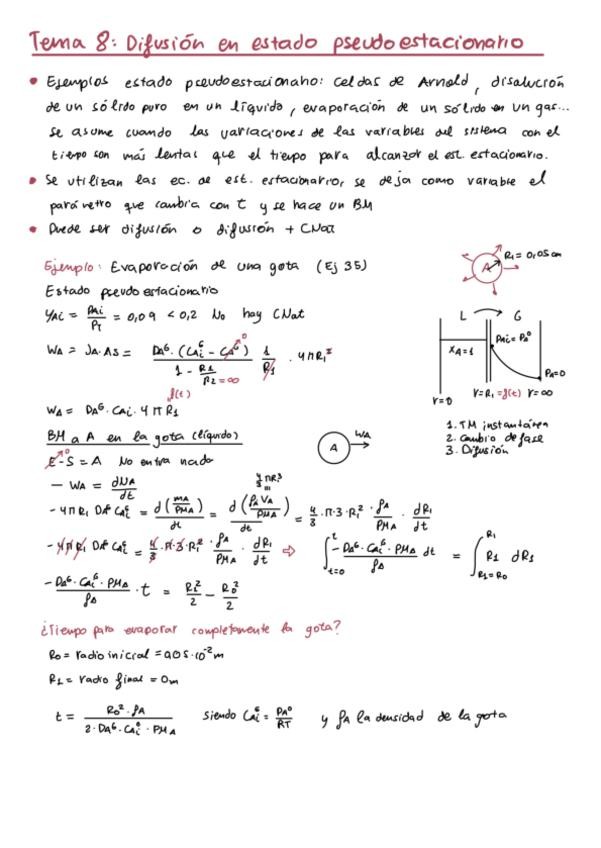 Tema 8: Difusión en estado pseudoestacionario
• Ejemplos estado pseudoestacionario: celdas de Arnold, disolución
de un sólido puro en un líquido, evaporación de un sólido en un gas...
Se asume cuando las variaciones de las variables del sistema con el
tiempo son más lentas que el tiempo para alcanzar el est. estacionario.
• Se utilizan las ec. de est. estacionario, se deja como variable el
parámetro que cambia con t y se hace un BM
• Puede ser difusión o difusión + CNat
Ejemplo: Evaporación de una gota (Ej 35)
A R1 = 0,05 cm
Estado pseudo estacionario
yAi = PAi/PT = 0,09 < 0,2 No hay CNat
L → G
XA=1 PAi = PA° PA=0
r=0 r=R1=f(t) r=∞
WA = JA·AS = DAG·(CAiG - CAG)→0 / (1 - R1/R2=∞) · 1/R1 · 4πR1²
f(t)
WA = DAG·CAi·4πR1
1. TM instantánea
2. Cambio de fase
3. Difusión
BM a A en la gota (líquido)
A WA
E→0 - S = A No entra nada
- WA = dNA/dt
4/3 πR1³
- 4πR1 DAG CAiG = d(mA/PMA)/dt = d(ρA VA/PMA)/dt = 4/3·π·3·R1²·ρA/PMA·dR1/dt
- 4πR1 DAG CAiG = 4/3·π·3·R1²·ρA/PMA·dR1/dt ⇒ ∫t=0 t -DAG·CAiG·PMA/ρA dt = ∫R1=R0 R1 R1 dR1
-DAG·CAiG·PMA/ρA · t = R1²/2 - R0²/2
¿Tiempo para evaporar completamente la gota?
R0 = radio inicial = 0,05·10⁻² m
R1 = radio final = 0m
t = R0²·ρA / 2·DAG·CAiG·PMA siendo CAiG = PA°/RT y ρA la densidad de la gota